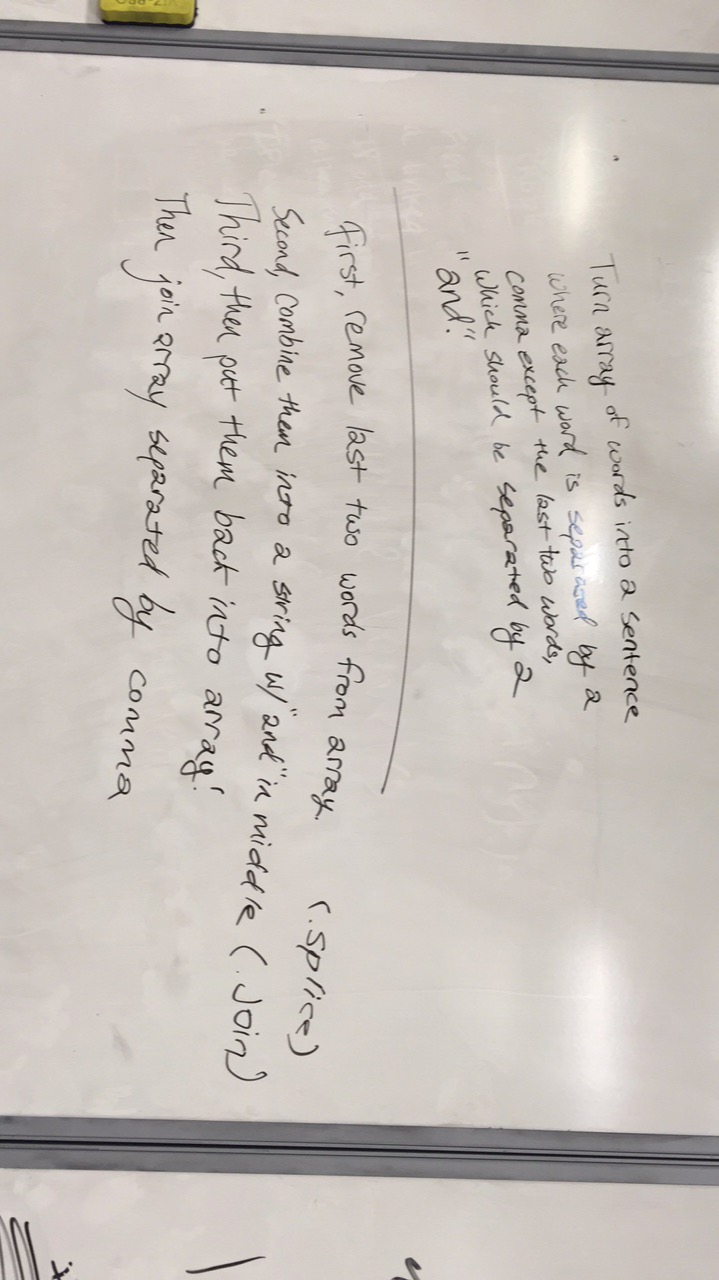 Turn array of words into a sentence
where each word is separated by a
comma except the last two words,
which should be separated by a
"and."
First, remove last two words from array. (.splice)
Second, combine them into a string w/ "and" in middle (.join)
Third, then put them back into array!
Then join array separated by comma